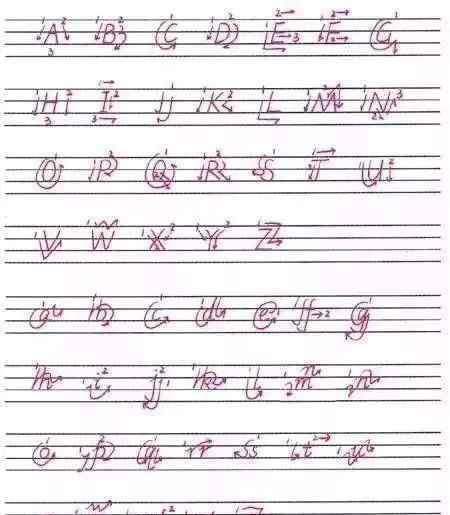 A B C D E F G
H I J K L M N
O P Q R S T U
V W X Y Z
a b c d e f g
h i j k l m n
o p q r s t u